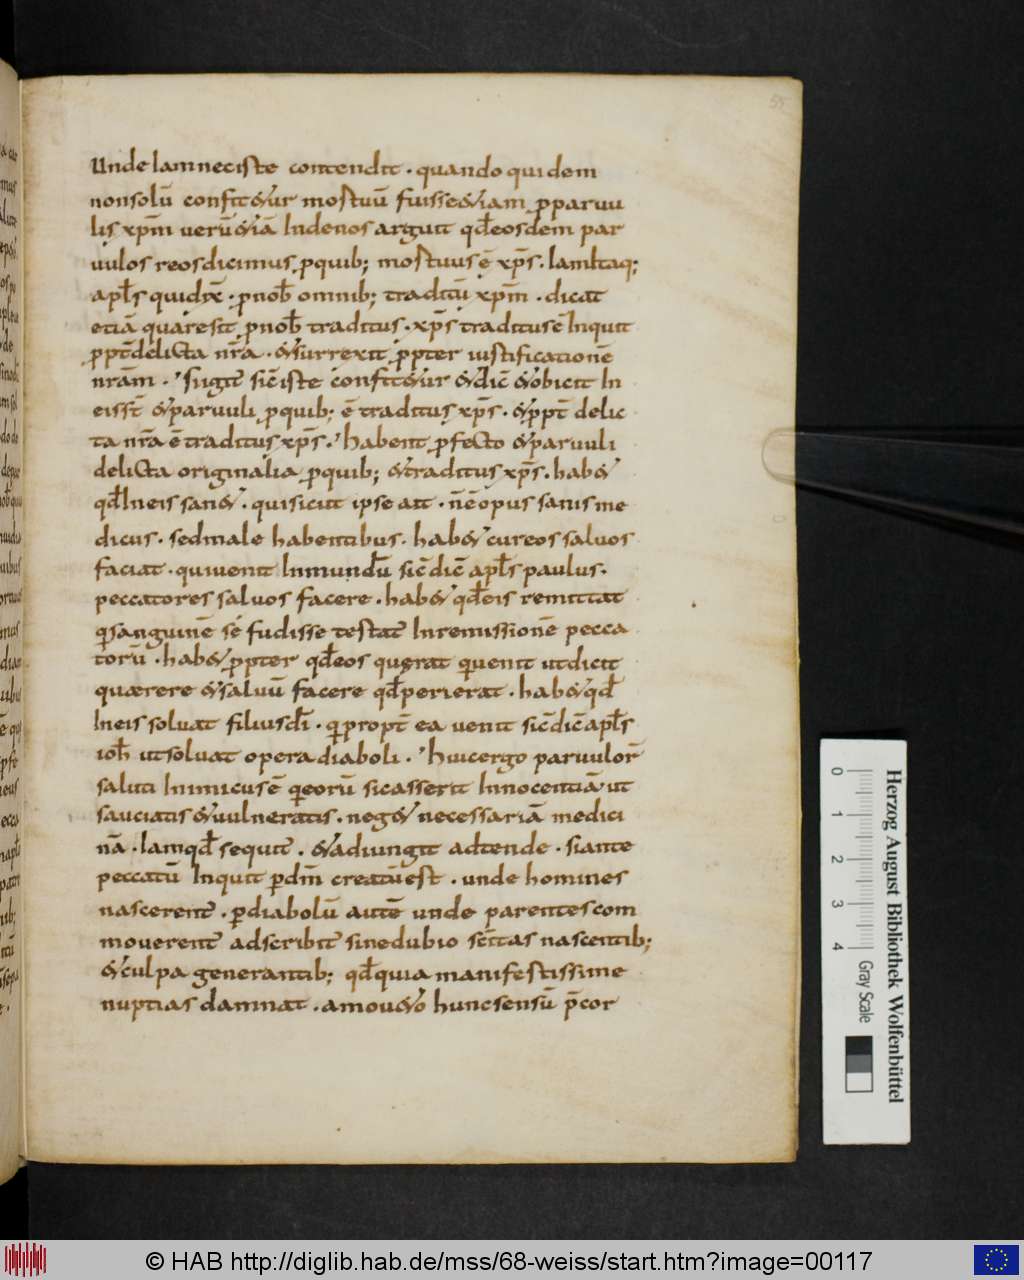 Unde Iam neciste contendit · quando quidem
nonsolū confit&ur mortuū fuisse&iam ꝓparuu
lis xp̄m uerū&iā Indenos arguit qđeosdem par
uulos reosdicimus, ꝓquib; mortuus ē xp̄s. Iamitaq;
apl̄s quidix̄ · ꝓnob̄ omnib; traditū xp̄m · dicat
etiā quaresit ꝓnob̄ traditus · xp̄s traditusē Inquit
ꝓpt̄delicta nr̄a · &surrexit ꝓpter iustificationē
nr̄am · Sugit̄ sic̄iste confit&ur &dic̄ &obicit In
eisst̄ &paruuli ꝓquib; ē traditus xp̄s · &ꝓpt̄ delic
ta nr̄a ē traditus xp̄s. Habent ꝓfecto &paruuli
delicta originalia ꝓquib; &traditus xp̄s. hab&
qđIneis san& · quisicut ipse ait · n̄ēopus sanis me
dicus · sedmale habentibus · hab& cureos saluos
faciat · quiuenit Inmundū sic̄dic̄ apl̄s paulus ·
peccatores saluos facere · hab& qđeis remittat
q̇sanguinē sē fudisse testat̄ Inremissionē pecca
torū · hab& ꝓpter qđeos quęrat q̇uenit utdicit
quærere &saluū facere qđperierat · hab&qđ
Ineis soluat filiusdī · q̇propt̄ ea uenit sic̄dic̄apl̄s
ioh̄ utsoluat opera diaboli · Huicergo paruulor̄
saluti Inimicusē q̇eorū sicasserit Innocentiā ut
sauciatis &uulneratis · neg& necessariā medici
nā · Iamqđ sequit̄ · &adiungit adtende · siante
peccatū Inquit ꝑdm̄ creatūest · unde homines
nascerent̄ · ꝑdiabolū autē unde parentes com
mouerent̄ adscribit̄ sinedubio sc̄itas nascentib;
&culpa generantib; qđquia manifestissime
nuptias damnat · amou&o huncsensū p̄cor
Herzog August Bibliothek Wolfenbüttel
0 1 2 3 4 Gray Scale
© HAB http://diglib.hab.de/mss/68-weiss/start.htm?image=00117